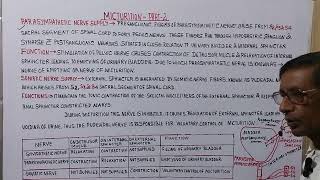 MICTURITION - PART-2
PARASYMPATHETIC NERVE SUPPLY - PREGANGLIONIC FIBERS OF PARASYMPATHETIC NERVE ARISE FROM S2, S3 & S4
SACRAL SEGMENT OF SPINAL CORD & FORM PELVIC NERVE. THESE FIBERS RUN THROUGH HYPOGASTRIC GANGLION &
SYNAPSE WITH POSTGANGLIONIC NEURONS SITUATED IN CLOSE RELATION TO URINARY BLADDER & INTERNAL SPHINCTER
FUNCTION - STIMULATION OF PELVIC NERVE CAUSES CONTRACTION OF DETRUSOR MUSCLE & RELAXATION OF INTERNAL
SPHINCTER LEADING TO EMPTYING OF URINARY BLADDER. DUE TO THIS, PARASYMPATHETIC NERVE IS KNOWN AS
NERVE OF EMPTYING OR NERVE OF MICTURITION.
SOMATIC NERVE SUPPLY - EXTERNAL SPHINCTER IS INNERVATED BY SOMATIC NERVE FIBERS KNOWN AS PUDENDAL NERVE
WHICH ARISES FROM S2, S3 & S4 SACRAL SEGMENTS OF SPINAL CORD.
FUNCTIONS - MAINTAINS THE TONIC CONTRACTION OF THE SKELETAL MUSCLE FIBERS OF THE EXTERNAL SPHINCTER &
THIS SPHINCTER CONTRACTED ALWAYS
DURING MICTURITION THIS NERVE IS INHIBITED. IT CAUSES RELAXATION OF EXTERNAL SPHINCTER LEADING
VOIDING OF URINE. THUS THE PUDENDAL NERVE IS RESPONSIBLE FOR VOLUNTARY CONTROL OF MICTURITION.
NERVE ON DETRUSOR MUSCLE ON INTERNAL SPHINCTER ON EXTERNAL SPHINCTER FUNCTION
SYMPATHETIC NERVE RELAXATION CONTRACTION NOT SUPPLIED FILLING OF URINARY BLADDER
PARASYMPATHETIC NERVE CONTRACTION RELAXATION NOT SUPPLIED EMPTYING OF URINARY BLADDER
SOMATIC NERVE NOT SUPPLIED NOT SUPPLIED CONTRACTION VOLUNTARY CONTROL OF MICTURITION